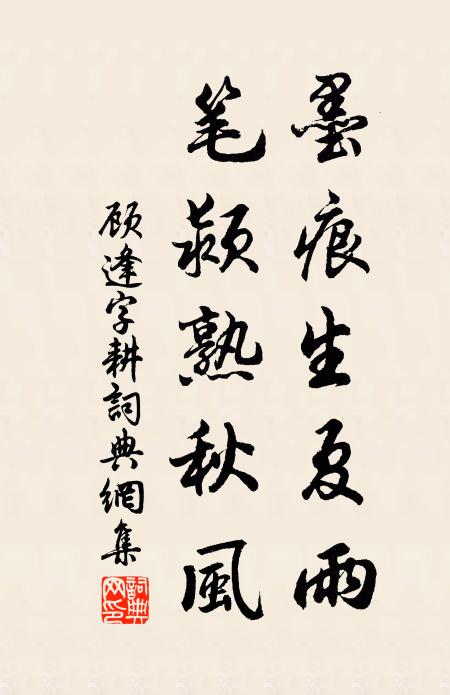 墨痕生夏雨
笔颖熟秋風
顾逢字耕詞典網集
詞典网印